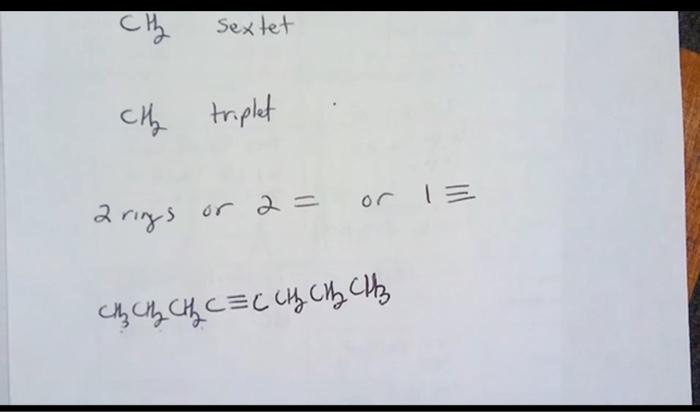 CH₂ sextet
CH₂ triplet
2 rings or 2 = or 1 ≡
CH₃CH₂CH₂C≡CCH₂CH₂CH₃